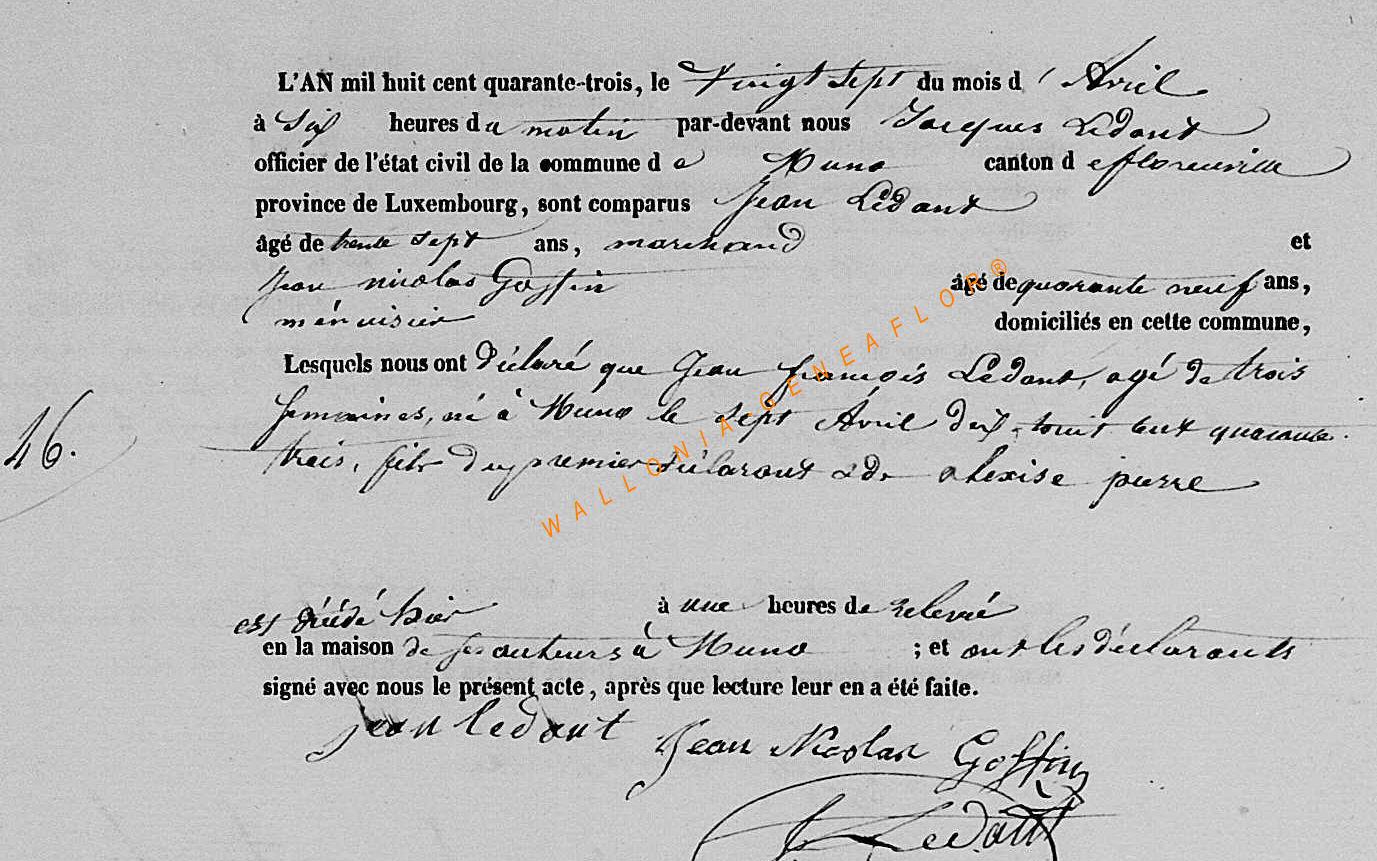 L'AN mil huit cent quarante-trois, le Vingt sept du mois d' Avril
à Six heures du matin par-devant nous Jacques Ledant
officier de l'état civil de la commune de Muno canton de florenville
province de Luxembourg, sont comparus Jean Lédant
âgé de trente sept ans, marchand et
Jean nicolas Goffin âgé de quarante neuf ans,
ménuisier domiciliés en cette commune,
Lesquels nous ont Déclaré que Jean françois Lédant, agé de trois
semaines, né à Muno le sept Avril dix-huit cent quarante
46.
trois, fils du premier déclarant & de alexise pierre
est décédé hier à une heures de relevé
en la maison de ses auteurs à Muno ; et ont les déclarants
signé avec nous le présent acte, après que lecture leur en a été faite.
jean ledant Jean Nicolas Goffin
Ledant
WALLONIA-GENEAFLOR®